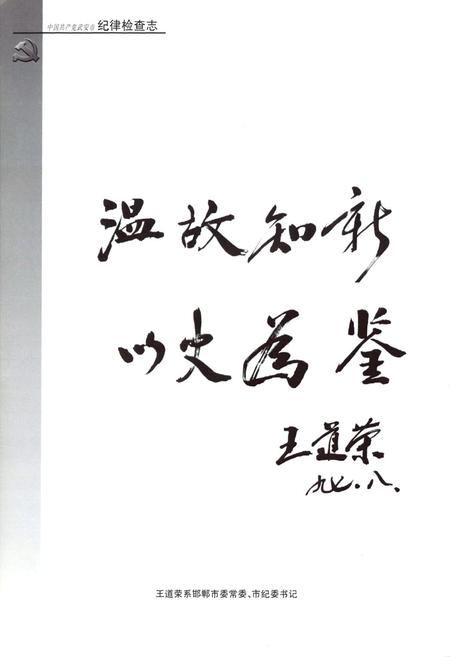 中国共产党武安市纪律检查志
温故知新
以史为鉴
王道荣
九七.八.
王道荣系邯郸市委常委、市纪委书记